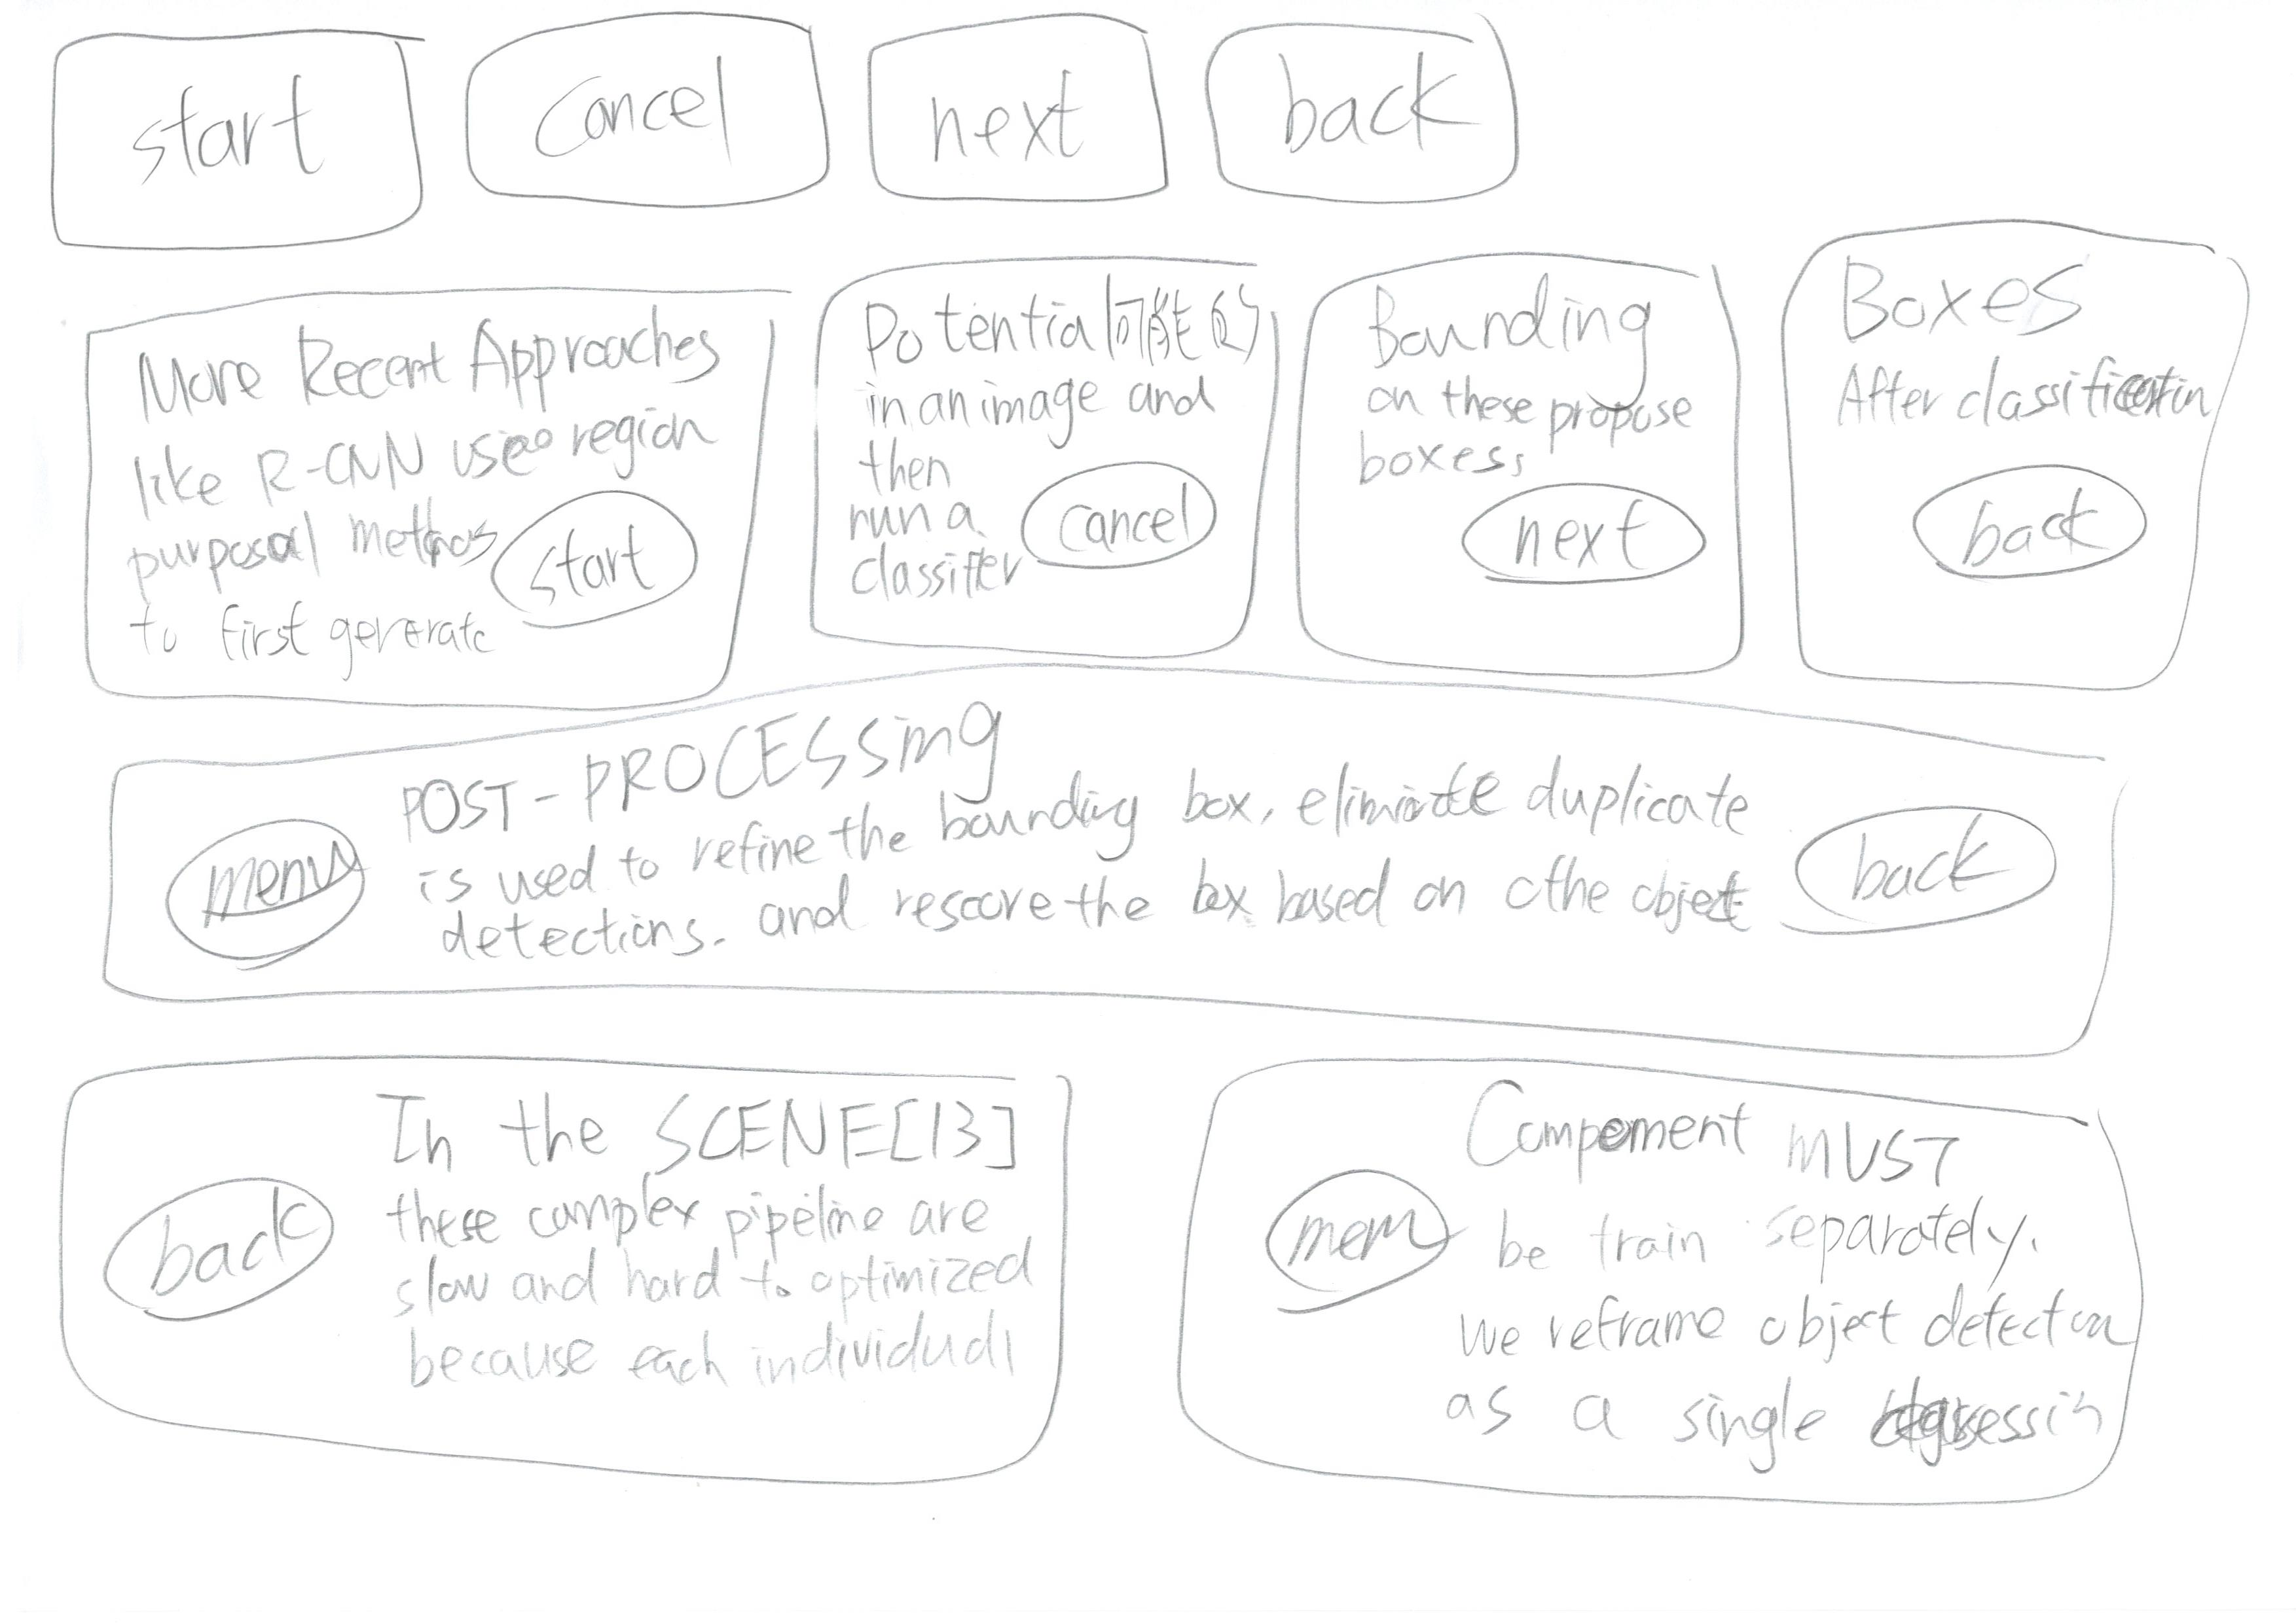 start
cancel
next
back
More Recent Approaches
like R-CNN use region
purposal methos
to first generate
start
Potential可能的
in an image and
then
run a
classifier
cancel
Bounding
on these propose
boxess,
next
Boxes
After classification
back
menu
POST-PROCESSing
is used to refine the bounding box, eliminate duplicate
detections. and rescore the box based on othe object
back
back
In the SCENE[13]
these complex pipeline are
slow and hard to optimized
because each individual
menu
Compoment MUST
be train separately.
we reframe object detection
as a single